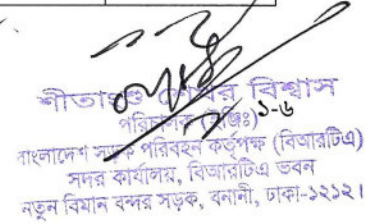 শীতাংশু শেখর বিশ্বাস
পরিচালক (ইঞ্জিঃ) ১-৬
বাংলাদেশ সড়ক পরিবহন কর্তৃপক্ষ (বিআরটিএ)
সদর কার্যালয়, বিআরটিএ ভবন
নতুন বিমান বন্দর সড়ক, বনানী, ঢাকা-১২১২।